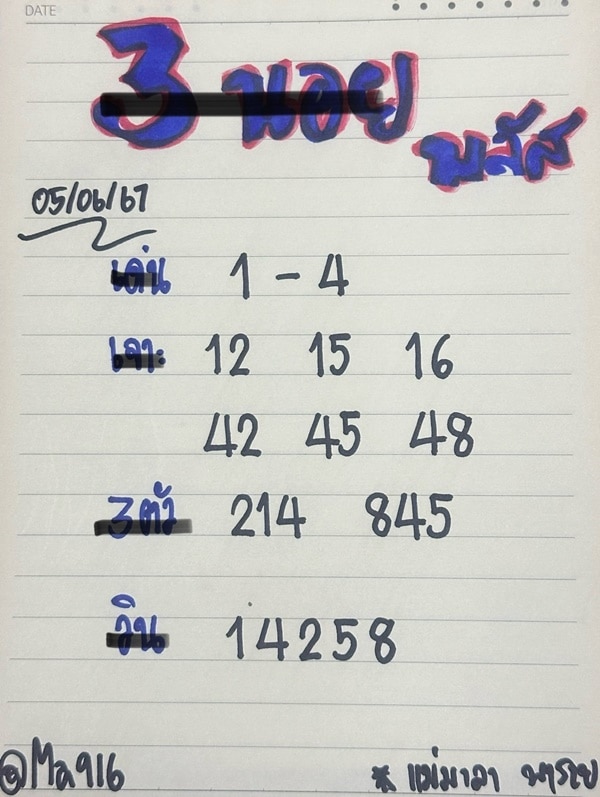 DATE
3 นอย
พลัส
05/06/67
เด่น 1 - 4
เจาะ 12 15 16
42 45 48
3 ตัว 214 845
วิน 14258
@Ma916 * แม่มาลา พารวย